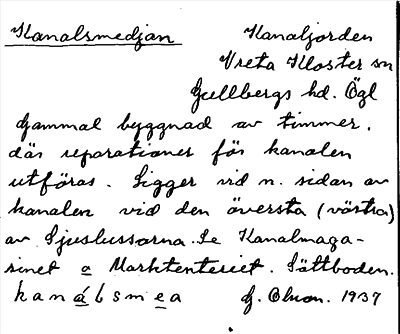 Kanalsmedjan Kanaljorden
Vreta Kloster sn
Gullbergs hd. Ögl
Gammal byggnad av timmer,
där reparationer för kanalen
utföras. Ligger vid n. sidan av
kanalen vid den översta (västra)
av Sjuslussarna. Se Kanalmaga-
sinet o Marktenteriet. Sättboden.
kanálsmea G. Olson. 1937